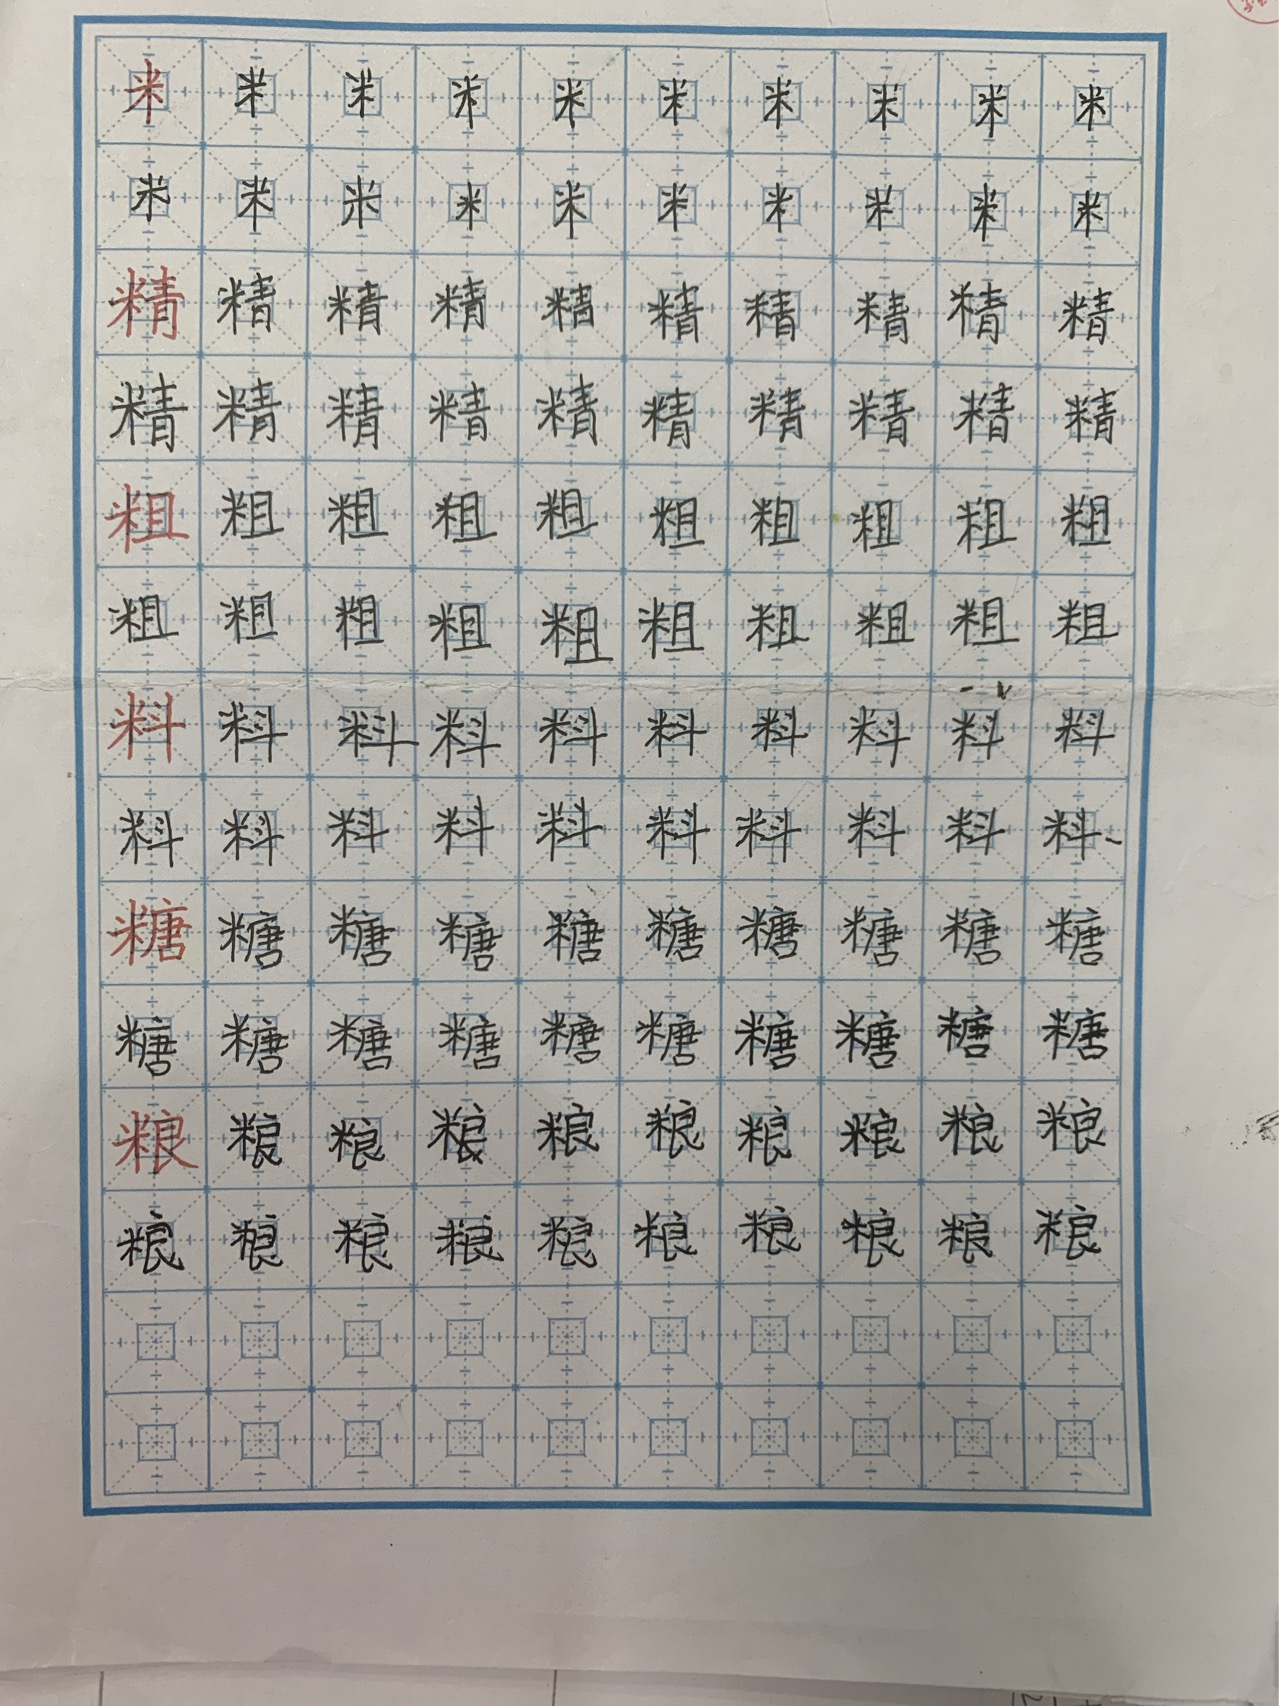 米米米米米米米米米米
米米米米米米米米米米
精精精精精精精精精精
精精精精精精精精精精
粗粗粗粗粗粗粗粗粗粗
粗粗粗粗粗粗粗粗粗粗
料料料料料料料料料料
料料料料料料料料料料
糖糖糖糖糖糖糖糖糖糖
糖糖糖糖糖糖糖糖糖糖
粮粮粮粮粮粮粮粮粮粮
粮粮粮粮粮粮粮粮粮粮